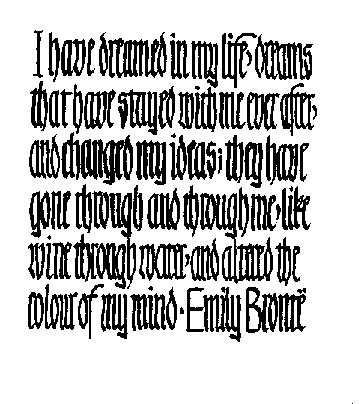 I have dreamed in my life, dreams
that have stayed with me ever after,
and changed my ideas; they have
gone through and through me, like
wine through water, and altered the
colour of my mind · Emily Brontë